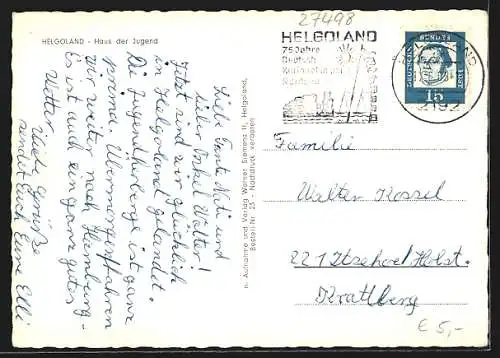 HELGOLAND - Haus der Jugend
27498
HELGOLAND
75 Jahre
Deutsch
DEUTSCHE
BUNDESPOST
15
2192
Liebe Tante Nati und
lieber Onkel Walter!
Jetzt sind wir glücklich
in Helgoland gelandet.
Die Jugendherberge ist ganz
prima. Übermorgen fahren
wir weiter nach Hamburg.
Es ist auch ein ganz gutes
Wetter.
Viele Grüße
sendet Euch Eure Elli
Aufnahme und Verlag Werner Siemens II, Helgoland,
Bestell Nr. 25 - Nachdruck verboten
Familie
Walter Kossel
221 Itzehoe/Holst.
Krattberg
€ 5,-